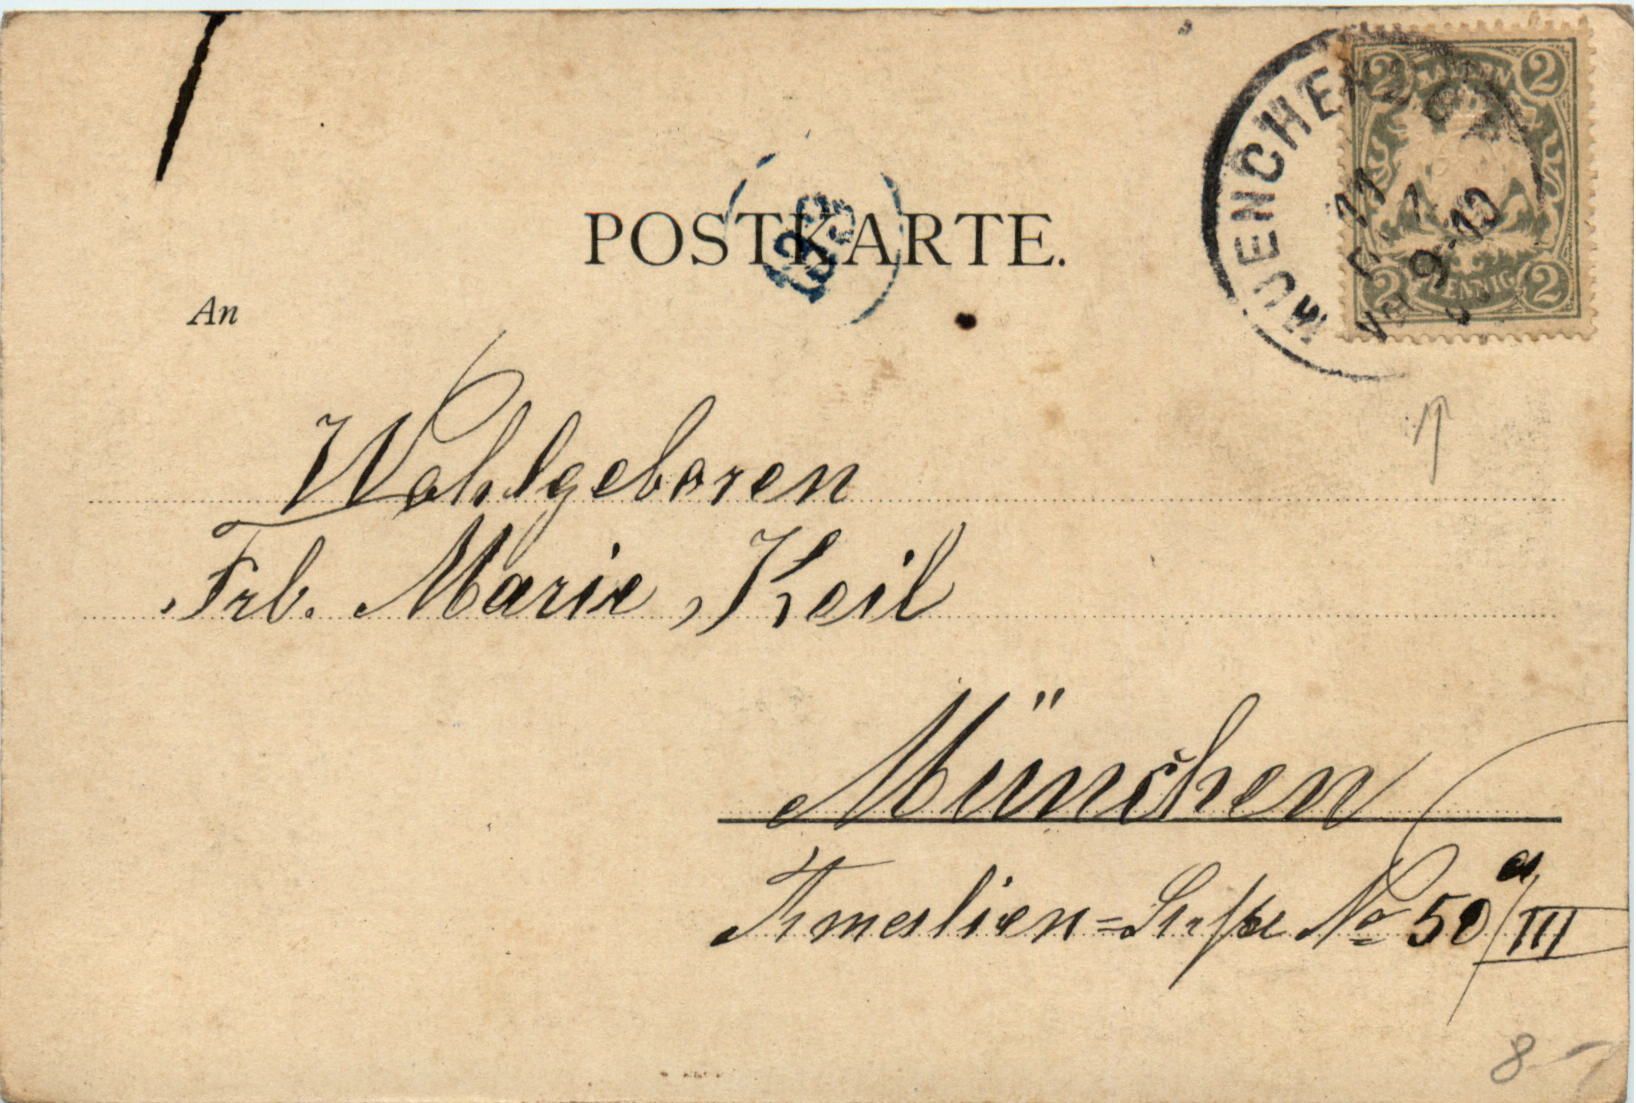 POSTKARTE.
BAYERN
2 2
2 PFENNIG 2
MUENCHEN
11
9-10
An
Wohlgeboren
Frl. Marie Keil
München
No 50 a/III
8-